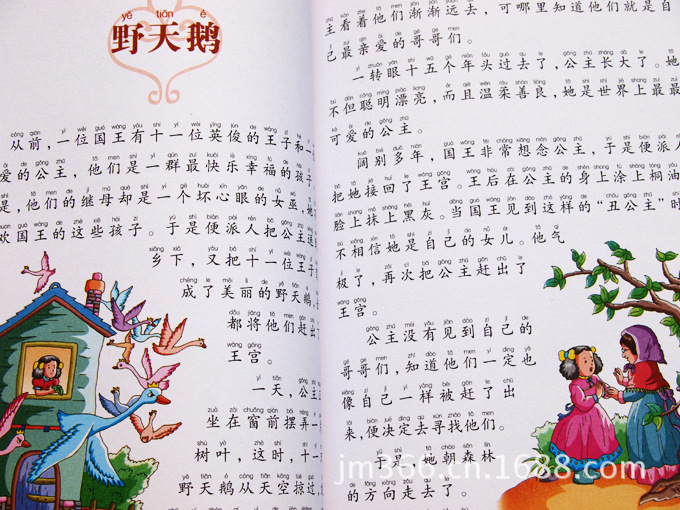 野天鹅
从前，一位国王有十一位英俊的王子和一
爱的公主，他们是一群最快乐幸福的孩子
是，他们的继母却是一个坏心眼的女巫，她
欢国王的这些孩子。于是便派人把公主送
乡下，又把十一位王子
成了美丽的野天鹅。
都将他们赶出了
王宫。
一天，公主
坐在窗前摆弄
树叶，这时，十一
野天鹅从天空掠过，
主看着他们渐渐远去，可哪里知道他们就是自
己最亲爱的哥哥们。
一转眼十五个年头过去了，公主长大了。她
不但聪明漂亮，而且温柔善良，她是世界上最最
可爱的公主。
阔别多年，国王非常想念公主，于是便派人
把她接回了王宫。王后在公主的身上涂上桐油
脸上抹上黑灰。当国王见到这样的“丑公主”时
不相信她是自己的女儿。他气
极了，再次把公主赶出了
王宫。
公主没有见到自己的
哥哥们，知道他们一定也
像自己一样被赶了出
来，便决定去寻找他们。
于是，她朝森林
的方向走去了。
jm366.cn.1688.com